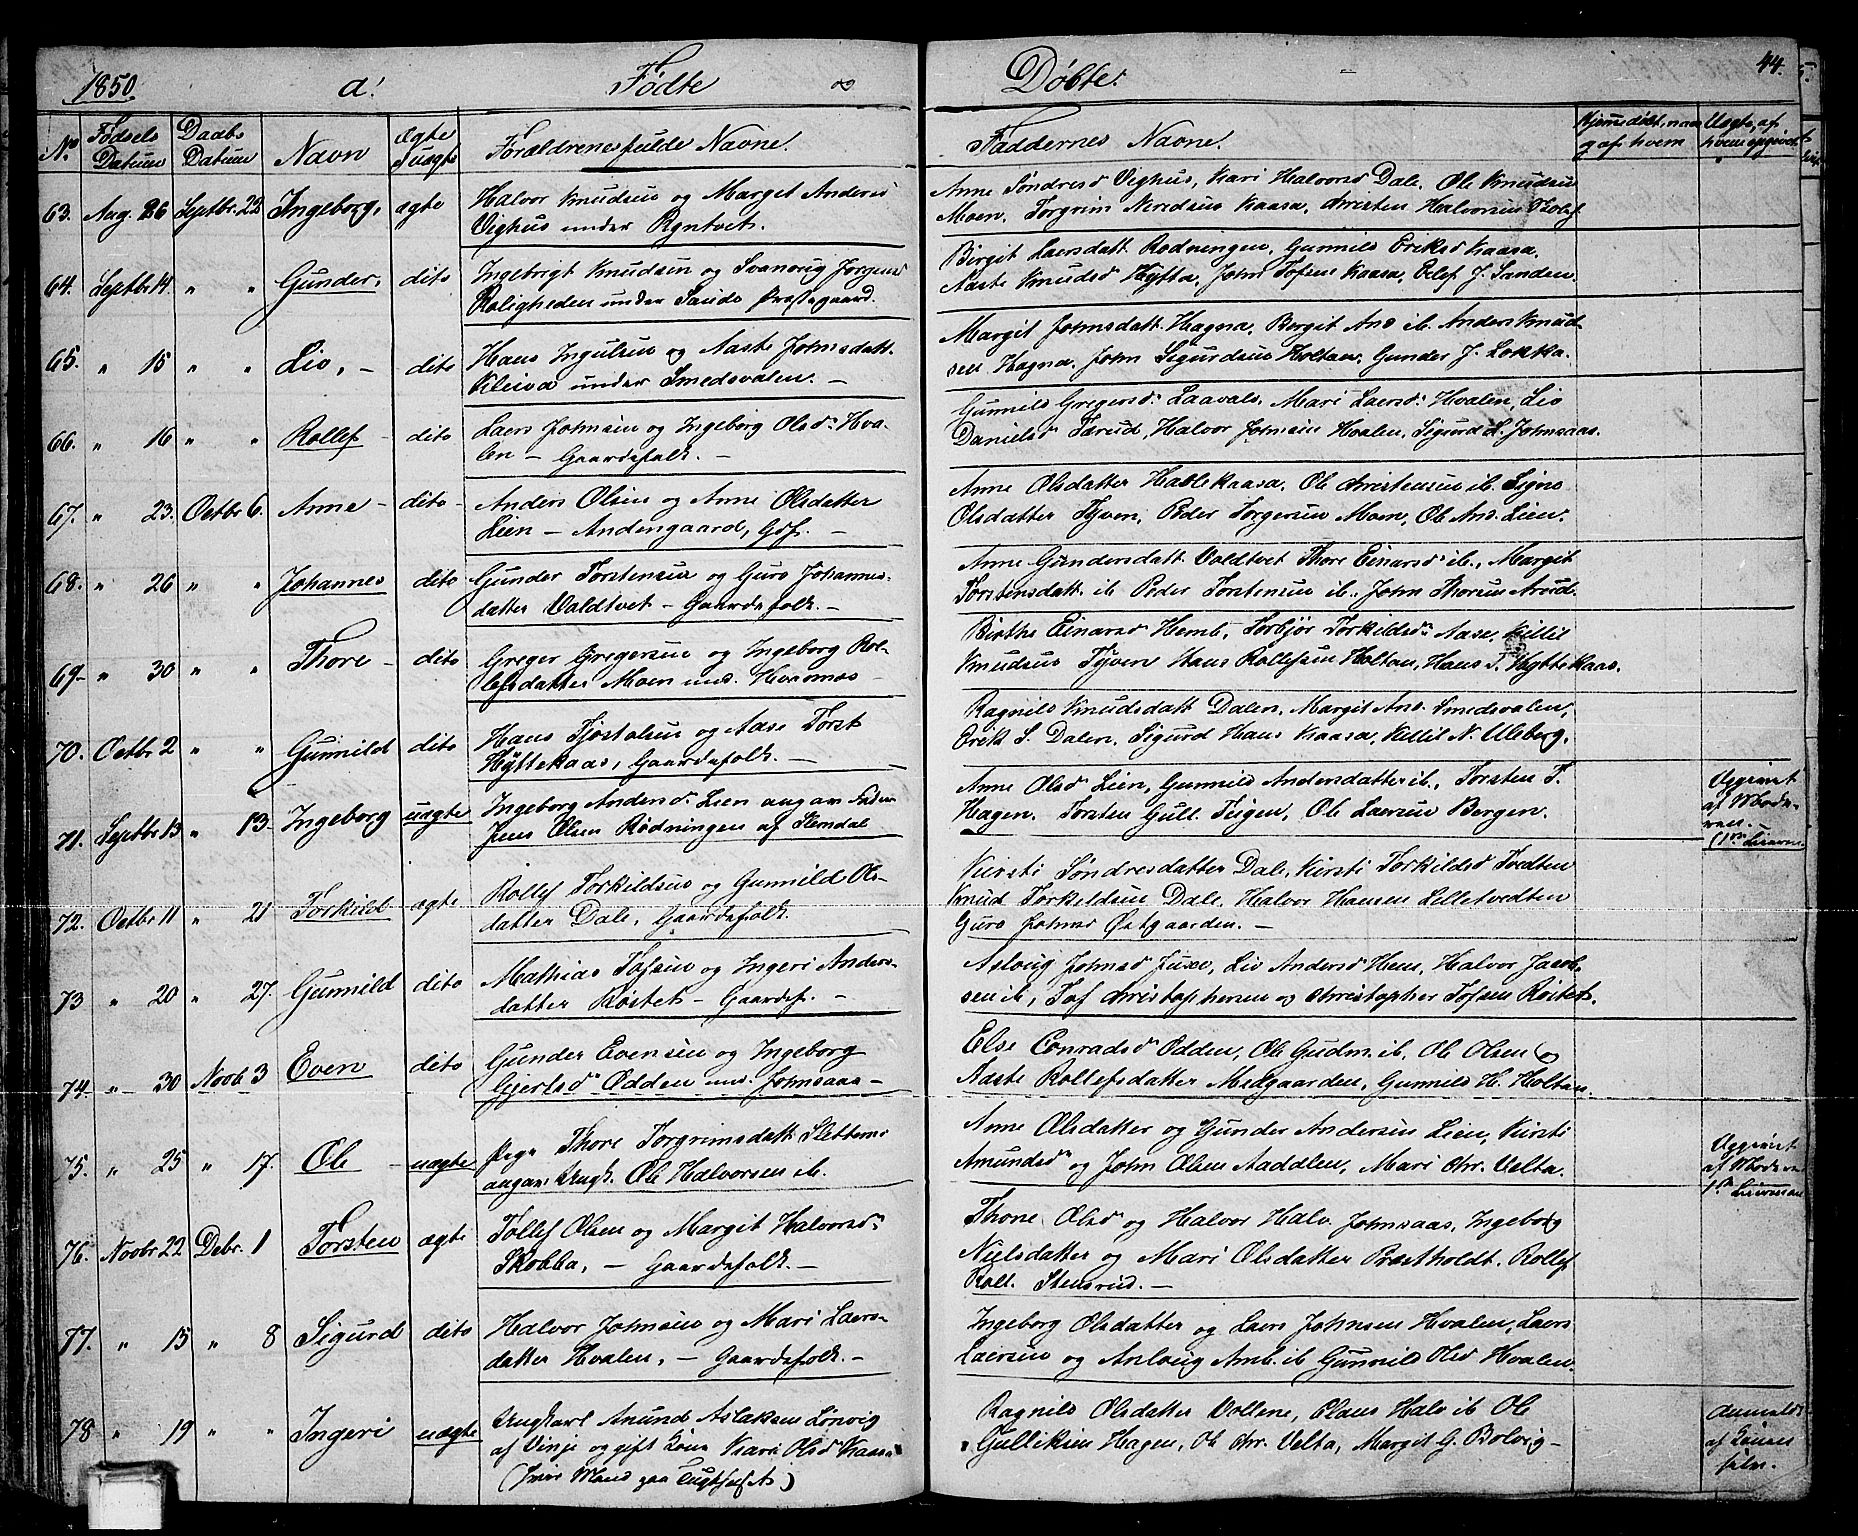 1850. a. Fødte og Døbte. 44.
No Fødsels Datum Daabs Datum Navn Ægte Uægte Forældrenes fulde Navne. Faddernes Navne. Hjemmedøbt, naar og af hvem Uægte, af hvem opgivet
63. Aug. 26 Septbr. 22 Ingeborg, ægte Halvor Knudsen og Margit Andersd
Vighus under Ryntvet.
Anne Søndresd Vighus, Kari Halvorsd Dale, Ole Knudsen
Moen, Torgrim Neredsen Kaasa, Christen Halvorsen
64. Septbr 14. " " Gunder, dito Ingebrigt Knudsen og Svanoug Jørgens
Roligheden under Saude Præstegaard.
Birgit Laersdatt. Rødningen, Gunnild Eriksd Kaasa,
Aaste Knudsd Hytta, John Tofsen Kaasa, Elef J. Sanden.
65. " 15 " " Liv, - dito Hans Ingulsen og Aaste Johnsdatt.
Kleiva under Smedsvalen. -
Margit Johnsdatt. Hagna, Borgit And ib. Anders Knud-
sen Hagna, John Sigurdsen Holtan, Gunder J. Løkka.
66. " 16 " " Rollef - dito Laers Johnsen og Ingeborg Olsd. Hva-
len - Gaardefolk. -
Gunnild Gregersd. Laavald, Mari Laersd. Hvalen, Liv
Danielsd Tærud, Halvor Johnsen Hvalen, Sigurd L. Johnsaas.
67. " 23. Octbr 6. Anne - dito - Anders Olsen og Anne Olsdatter
Lien - Andengaard, Gdf. -
Anne Olsdatter Hablekaasa, Ole Christensen ib. Signe
Olsdatter Tyven, Peder Torgersen Moen, Ole And. Lien.
68. " 26 " " Johannes dito Gunder Torstensen og Guro Johannes-
datter Valdtvet - Gaardefolk. -
Anne Gundersdatt. Valdtvet Thore Einarsd ib., Margit
Torstensdatt. ib Peder Torstensen ib., John Thorsen Aroid.
69- " 30 " " Thore - dito Greger Gregersen og Ingeborg Rol-
lefsdatter Moen und. Hvamodd -
Birthe Einarsd Hemb, Torbjør Torkildsd. Aase, Killil
Knudsen Tyven Hans Rollefsen Holtan, Hans S. Hyttekaas.
70. Octbr 2 " " Gunnild dito Hans Tjostolsen og Aase Torst
Hyttekaas, Gaardefolk. -
Ragnild Knudsdatt Dalen, Margit And. Smedsvalen,
Erik S. Dalen, Sigurd Hans Kaasa, Killil N. Uleberg.
71. Septbr 13 " 13- Ingeborg uægte Ingeborg Andersd. Lien angav Fader
Jens Olsen Rødningen af Slemdal
Anne Olsd Lien, Gunnild Andersdatter ib., Torsten T.
Hagen, Torsten Gull. Teigen, Ole Laersen Bergen.
Opgivet
af Mode-
ren.
(1ste Leierm.
72. Octbr 11 " 21 Torkild ægte Rollef Torkildsen og Gunnild Ols-
datter Dale, Gaardefolk.
Kirsti Søndresdatter Dale, Kirsti Torkildsd Tvedten
Knud Torkildsen Dale, Halvor Hansen Lilletvedten
Guro Johnsd Østgaarden. -
73 " 20 " 27. Gunnild dito Mathias Tofsen og Ingeri Anders-
datter Røstet - Gaardef. -
Asloug Johnsd Juve, Liv Andersd Hem, Halvor Jacob-
sen ib, Tof Christophersen og Christopher Tofsen Røstet.
74- " 30 Novb 3 Even dito Gunder Evensen og Ingeborg
Gjertsd. Odden und. Johnsaas -
Else Conradsd Odden, Ole Gudm. ib. Ole Olsen og
Aaste Rollefsdatter Midgaarden, Gunnild H. Holtan.
75. " 25 " 17. Ole - uægte Pige Thore Torgrimsdatt. Sletteme
angav. Ungk. Ole Halvorsen ib.
Anne Olsdatter og Gunder Andersen Lien, Kirsti
Amundsd. og John Olsen Aadalen, Mari Chr. Velta.
Opgivet
af Moderen
1ste Leiermaal
76. Novbr 22 Debr. 1 Torsten ægte Tollef Olsen og Margit Halvorsd.
Skobba, - Gaardefolk. -
Thone Olsd og Halvor Halv. Johnsaas, Ingeborg
Nielsdatter og Mari Olsdatter Præstholdt, Rollef
Roll. Stensrud. -
77. " 15 " 8 Sigurd dito Halvor Johnsen og Mari Laers-
datter Hvalen, - Gaardefolk. -
Ingeborg Olsdatter og Laers Johnsen Hvalen, Laers
Laersen og Asloug Amb. ib Gunnild Olsd Hvalen.
78 " 19 " " Ingeri uægte Ungkarl Anund Aslaksen Lønvig
af Vinje og gift Kone Kari Olsd Kaasa
(hvis Mand paa Tugthuset)
Ragnild Olsdatter Vollene, Olaus Halv ib Ole
Gulliksen Hagen, Ole Chr. Velta, Margit G. Bolvig -
Anmeldt
af Konen
selv.